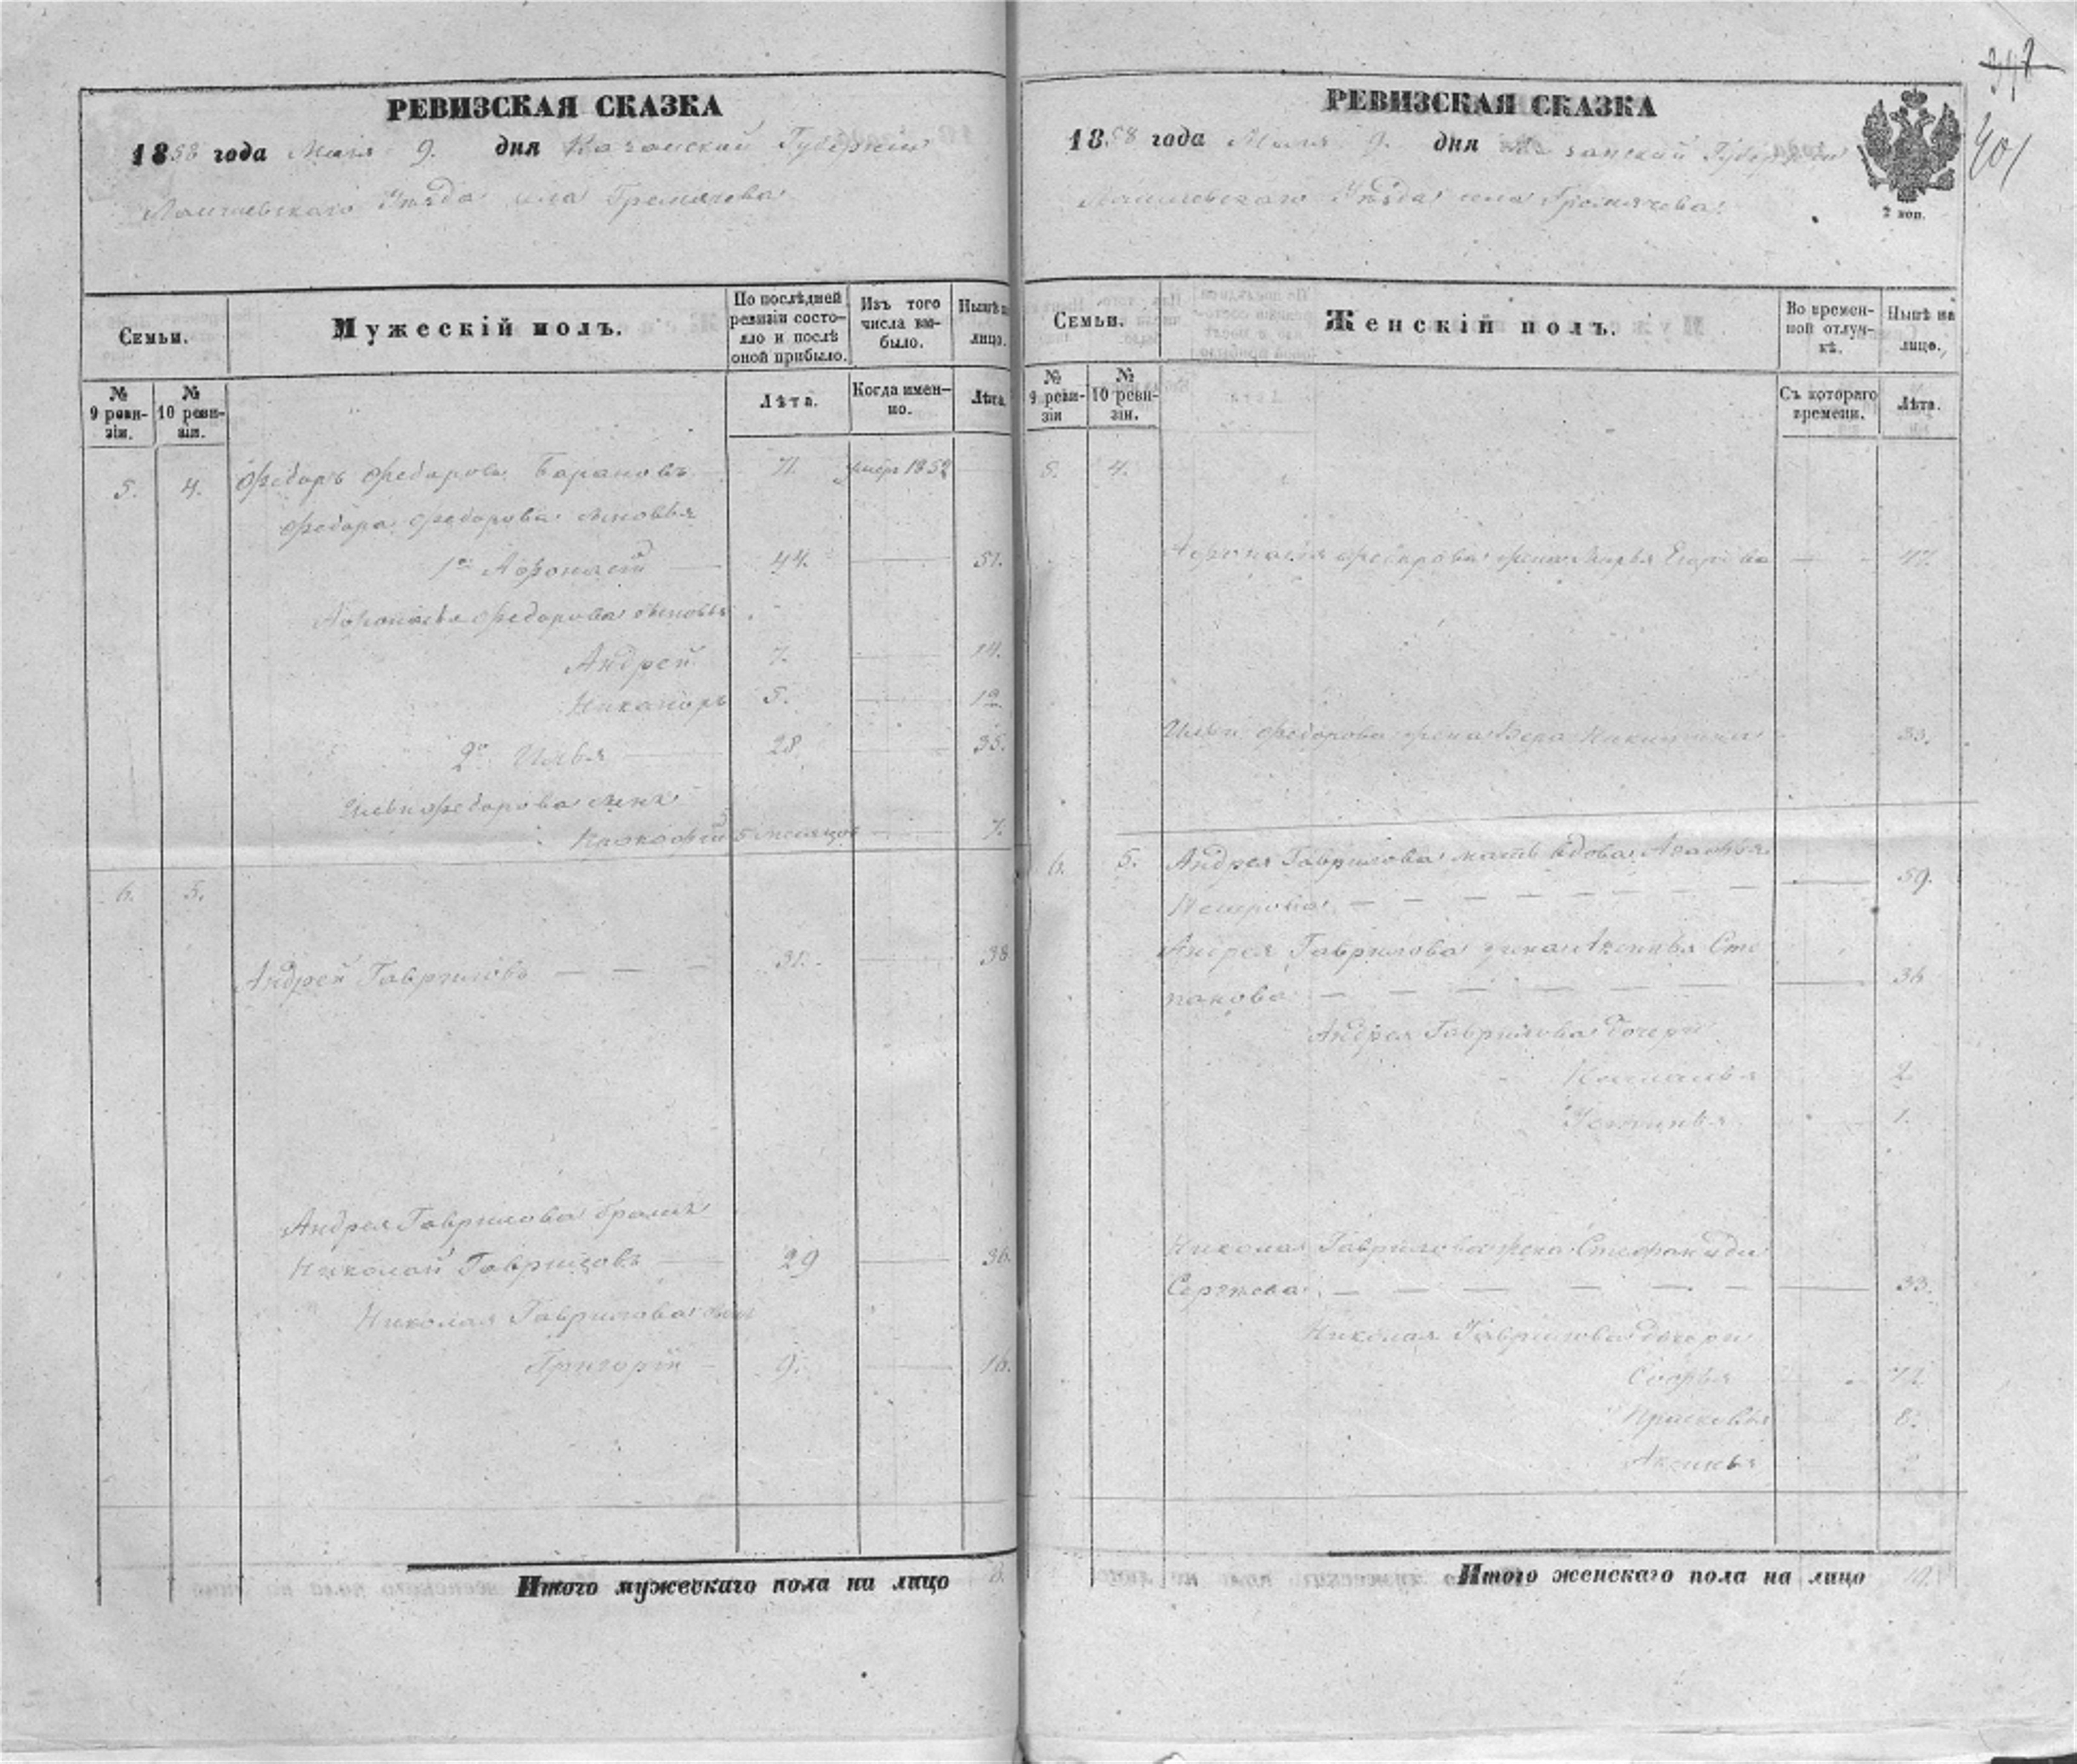 РЕВИЗСКАЯ СКАЗКА
1858 года Маія 9. дня Казанской Губерніи
Лаишевскаго Уѣзда села Гремячева
Семьи.
Мужескій полъ.
По послѣдней ревизіи состояло и послѣ оной прибыло.
Изъ того числа выбыло.
Нынѣ на лицо.
№ 9 ревизіи.
№ 10 ревизіи.
Лѣта.
Когда именно.
Лѣта.
5. 4. Федоръ Федоровъ Барановъ 71. умеръ 1852
Федора Федорова сыновья
1й Афонасей 44. 51.
Афонасья Федорова сыновья
Андрей 7. 14.
Никаноръ 5. 12
2й Илья 28 35.
Ильи Федорова сынъ
5 месяцов 7.
6. 5.
Андрей Гавриловъ 31. 38
Андрея Гаврилова братъ
Николай Гавриловъ 29 36.
Николая Гаврилова сынъ
Григорій 9. 16.
Итого мужескаго пола на лицо
347
401
РЕВИЗСКАЯ СКАЗКА
1858 года Маія 9. дня Казанской Губерніи
Лаишевскаго Уѣзда села Гремячева
2 коп.
Семьи.
Женскій полъ.
Во временной отлучкѣ.
Нынѣ на лицо.
№ 9 ревизіи
№ 10 ревизіи.
Съ котораго времени.
Лѣта.
5. 4.
Афонасья Федорова жена Марья Егорова 47.
Ильи Федорова жена Вера Никитина 33.
6. 5. Андрея Гаврилова мать вдова Агафья
Петрова 59.
Андрея Гаврилова жена Аксинья Сте
панова 36
Андрея Гаврилова дочери
Наталья 2
Устинья 1.
Николая Гаврилова жена Стефанида
Сергѣева 33.
Николая Гаврилова дочери
Софья 12
Прасковья 8.
Аксинья
Итого женскаго пола на лицо